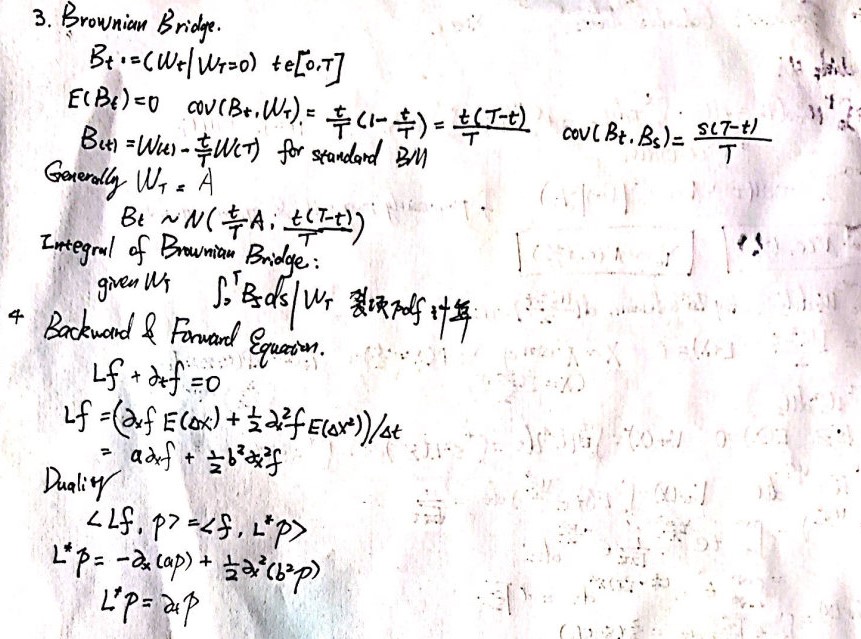 3. Brownian Bridge.
Bt := (Wt | WT=0) t∈[0,T]
E(Bt)=0 cov(Bt, WT) = t/T (1 - t/T) = t(T-t)/T cov(Bt, Bs) = s(T-t)/T
B(t) = W(t) - t/T W(T) for standard BM
Generally WT = A
Bt ~ N( t/T A, t(T-t)/T )
Integral of Brownian Bridge:
given WT ∫₀ᵀ Bs ds | WT pdf 计算
4 Backward & Forward Equation.
Lf + ∂tf = 0
Lf = (∂xf E(Δx) + 1/2 ∂x²f E(Δx²))/Δt
= a∂xf + 1/2 b²∂x²f
Duality
<Lf, p> = <f, L*p>
L*p = -∂x(ap) + 1/2 ∂x²(b²p)
L*p = ∂tp